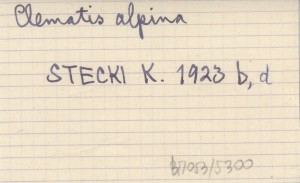 Clematis alpina
STECKI K. 1923 b, d
B7053/5300